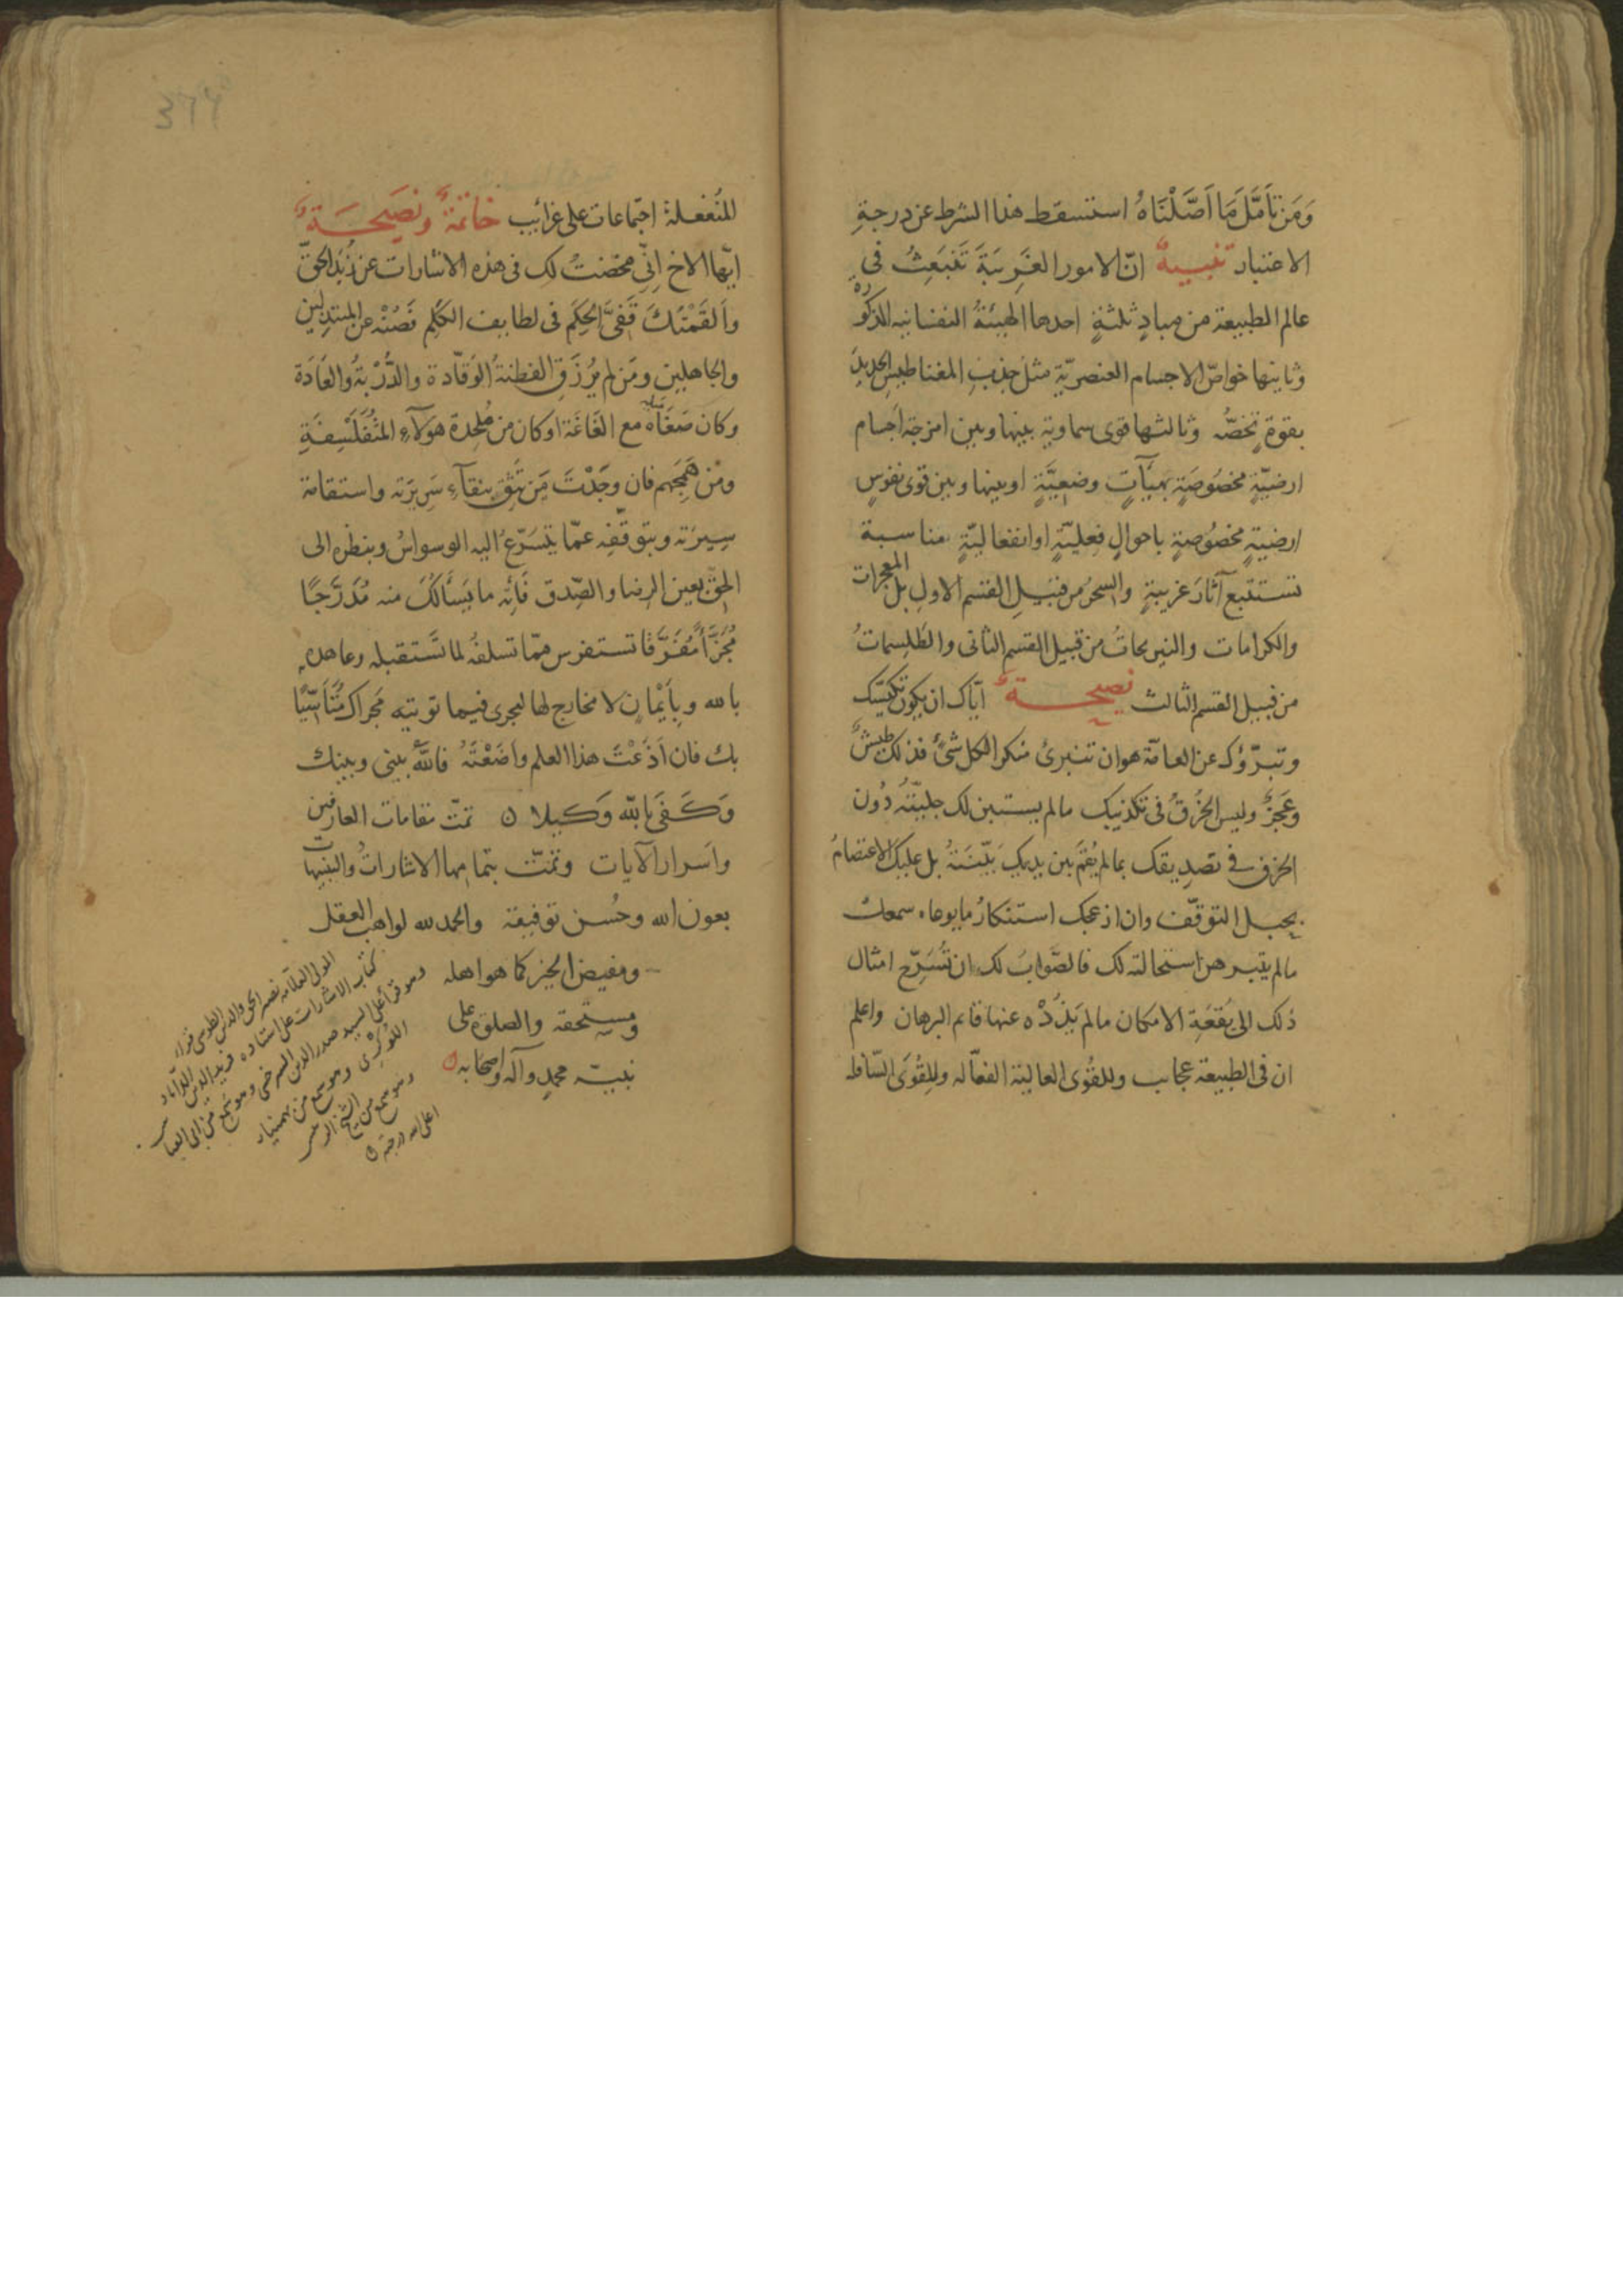 وَمَن تَأَمَّلَ مَا اَصَّلْنَاهُ استسقط هذا الشرط عن درجةِ
الاعتبار تنبيهٌ انّ الامور الغَرِيبَةَ تَنبَعِثُ فى
عالم الطبيعة من مبادٍ ثلثةٍ احدها الهيئةُ النفسانيه المذكوره
وثانيها خواصّ الاجسام العنصريّةِ مثل جذبِ المغناطيسِ الحديدَ
بقوةٍ تخصُّه وثالثها قوى سماوية بينها وبين امزجة اجسام
ارضيّةٍ مخصُوصَةٍ بهيآتٍ وضعيَّةٍ او بينها وبين قوى نفوسٍ
ارضيةٍ مخصُوصةٍ باحوالٍ فعليّةٍ او انفعاليّةٍ مناسبة
تستتبع آثارَ غريبةٍ والسحرُ من قبيلِ القسم الاولِ بل المعجزات
والكرامات والنيرنجاتُ من قبيل القسم الثانى والطَلِسماتُ
من قبيل القسم الثالث نصيحةٌ ايّاك ان يكون تكيّسك
وتبرّؤك عن العامّة هو ان تنبرئ منكرا لكل شئٍ فذلك طيشٌ
وعَجزٌ وليس الخُرْقُ فى تكذيبك ما لم يستبن لك جليّتُه دُون
الخرق فى تصديقك بما لم يُقَم بين يديك بَيّنَتهُ بل عليك الاعتصامُ
بحبل التوقّف وان ازعجك استنكارُ ما يوعاه سمعك
ما لم يتبرهن استحالته لك فالصَّوابُ لك ان تُسَرِّح امثال
ذلك الى بُقعَةِ الامكان ما لم يَذُدْه عنها قائم البرهان واعلم
ان فى الطبيعة عجائب وللقُوى العالية الفعّاله وللقُوَى السّافلة
المنُفعلةِ اجتماعات على غرائب خاتمةٌ ونصَيحَةٌ
ايّها الاخ اِنّى مخضتُ لك فى هذه الاشارات عن زُبَد الحقّ
وَالقَمْتُكَ قَفىَّ الحِكَم فى لطايف الكَلِم فَصُنْه عن المبتذلين
والجاهلين ومَن لم يُرزَقِ الفطنةُ الوَقّادة والدُّرْبَةُ والعَادَة
وكان صَغَاهُ مع الغَاغَة او كان من مُلحِدة هَولآءِ المتُفَلسِفَةِ
ومن هَمَجِهم فان وجَدْتَ مَن تثق بنقآءِ سَرِيرَته واستقامة
سِيرَته وبتوقّفِه عمّا يتَسَرّعُ اليه الوسواسُ وبنظره الى
الحقّ بعين الرضا والصّدق فَأتِه ما يَسأَلُكَ منه مُدَرَّجًا
مُجَزَّأً مُفَرَّقًا تستفرس ممّا تسلفهُ لما تَستقبله وعاهده
بالله وبأيْمَانٍ لا مخارج لها ليجرى فيما توتيه مَجراك مُتَأَسِّيًا
بك فان اَذَعْتَ هذا العلم واَضَعْتَهُ فاللّٰهُ بينى وبينك
وَكَفَى بِاللّٰه وَكيلا ه تمّت مقامات العارفين
واَسرار الآيات وتمّت بتمامها الاشاراتُ والتنبيهات
بعون الله وحُسن توفيقه والحمد لله لواهب العقل
ومفيض الخير كما هو اهله
ومستحقه والصلوة على
نبيّه محمدٍ وآله واصحابه ه
المولى العلّامه نصير الحق والدين الطوسى قرأ
كتاب الاشارات على استاده فريد الدين الداماد
وهو قرأ على السيد صدر الدين السرخسى وهو سمع من ابى العباس
اللوكرى وهو سمع من بهمنيار
وهو سمع من الشيخ الرئيس
اعلى الله درجته ه